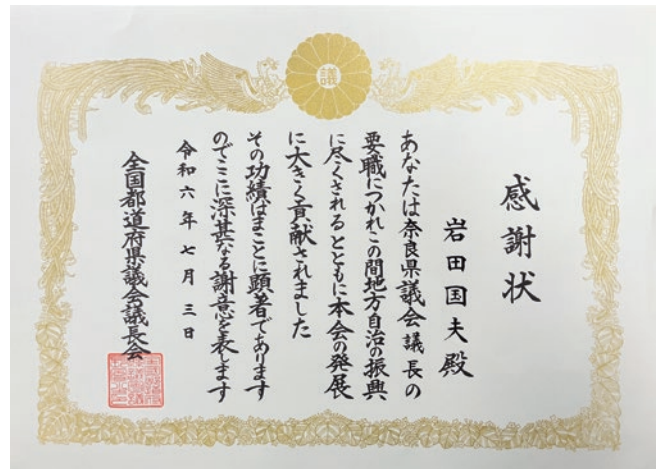 議
感謝状
岩田国夫殿
あなたは奈良県議会議長の
要職につかれこの間地方自治の振興
に尽くされるとともに本会の発展
に大きく貢献されました
その功績はまことに顕著であります
のでここに深甚なる謝意を表します
令和六年七月三日
全国都道府県議会議長会